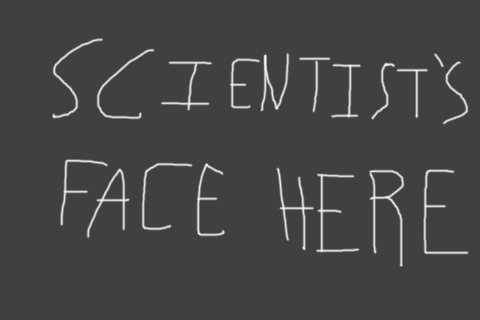 SCIENTIST'S
FACE HERE